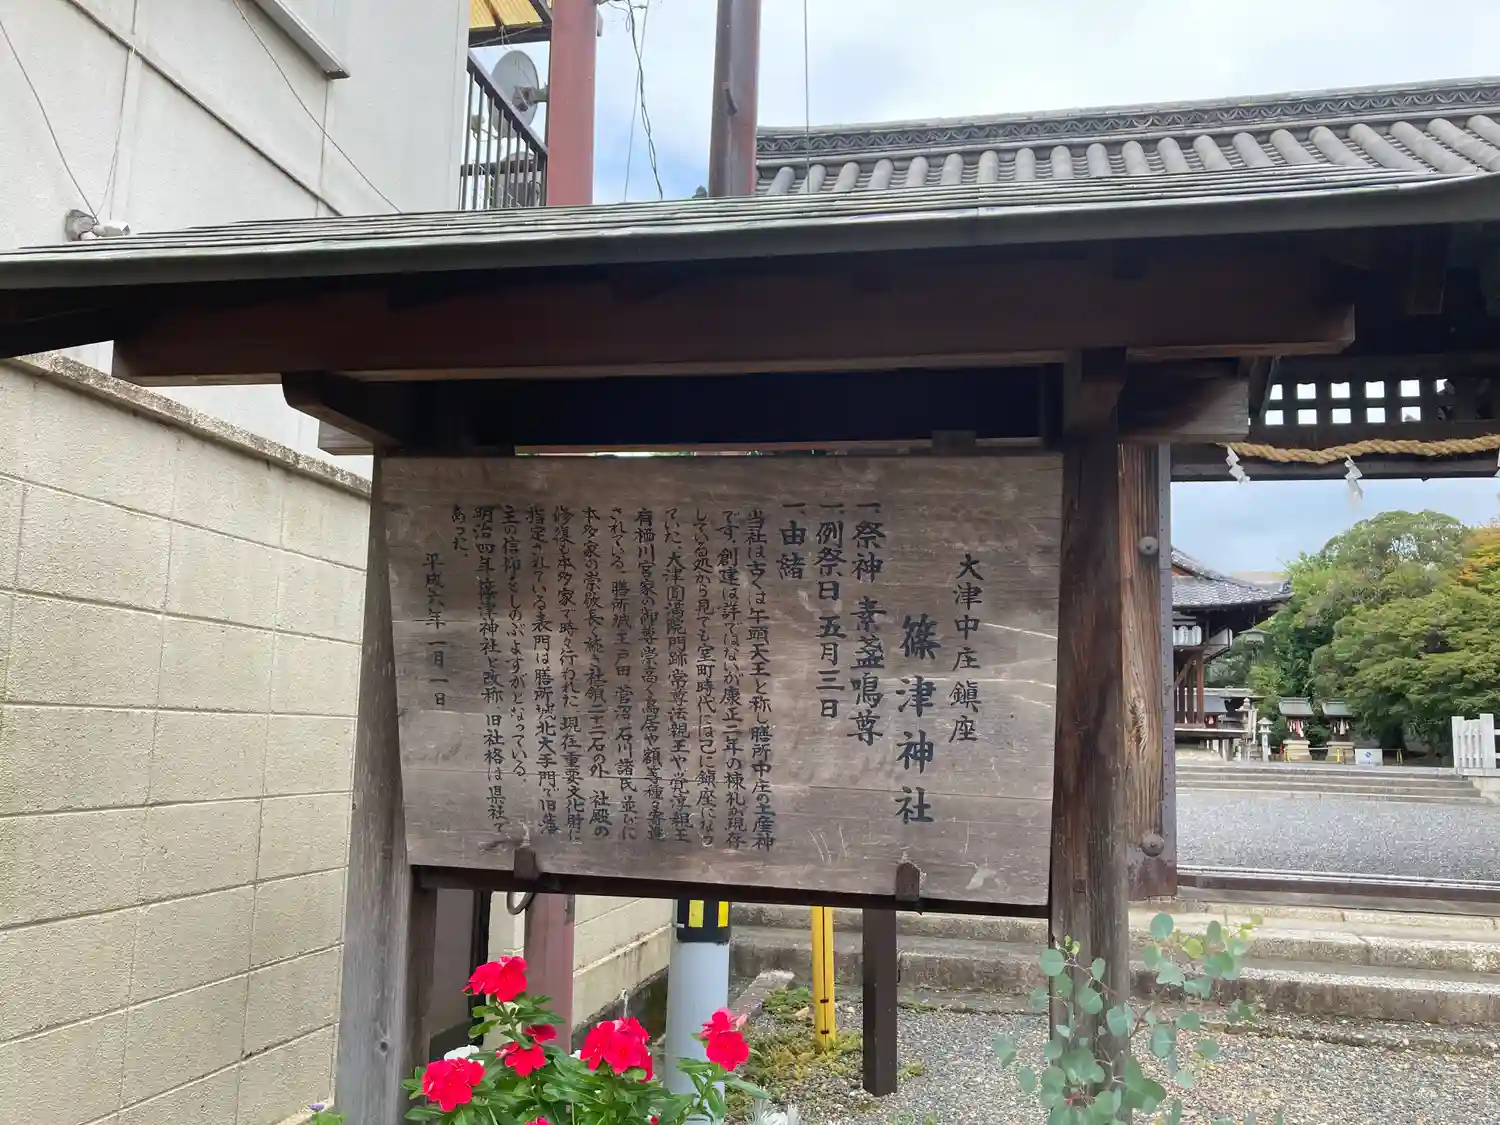 大津中庄鎮座
篠津神社
一祭神 素盞鳴尊
一例祭日 五月三日
一由緒
当社は古くは牛頭天王と称し膳所中庄の土産神
です。創建は詳ではないが康正二年の棟札が現存
している処から見ても室町時代には已に鎮座になっ
ていた。大津円満院門跡常尊法親王や覚淳親王
有栖川宮家の御尊崇高く鳥居や額等種々寄進
されている。膳所城主戸田 菅沼 石川諸氏並びに
本多家の崇敬長く続き社領二十二石の外 社殿の
修復も本多家で時々行われた。現在重要文化財に
指定されている表門は膳所城北大手門で旧藩
主の信仰をしのぶよすがとなっている。
明治四年篠津神社と改称、旧社格は県社で
あった。
平成六年一月一日